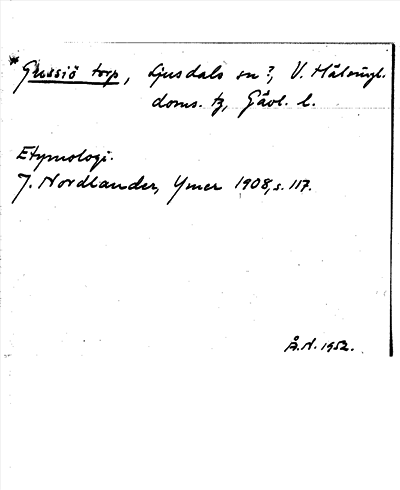 *Grussiö torp, Ljusdals sn?, V. Hälsingl.
doms. tg, Gävl. l.
Etymologi.
J. Nordlander, Ymer 1908, s. 117.
Å.N. 1952.